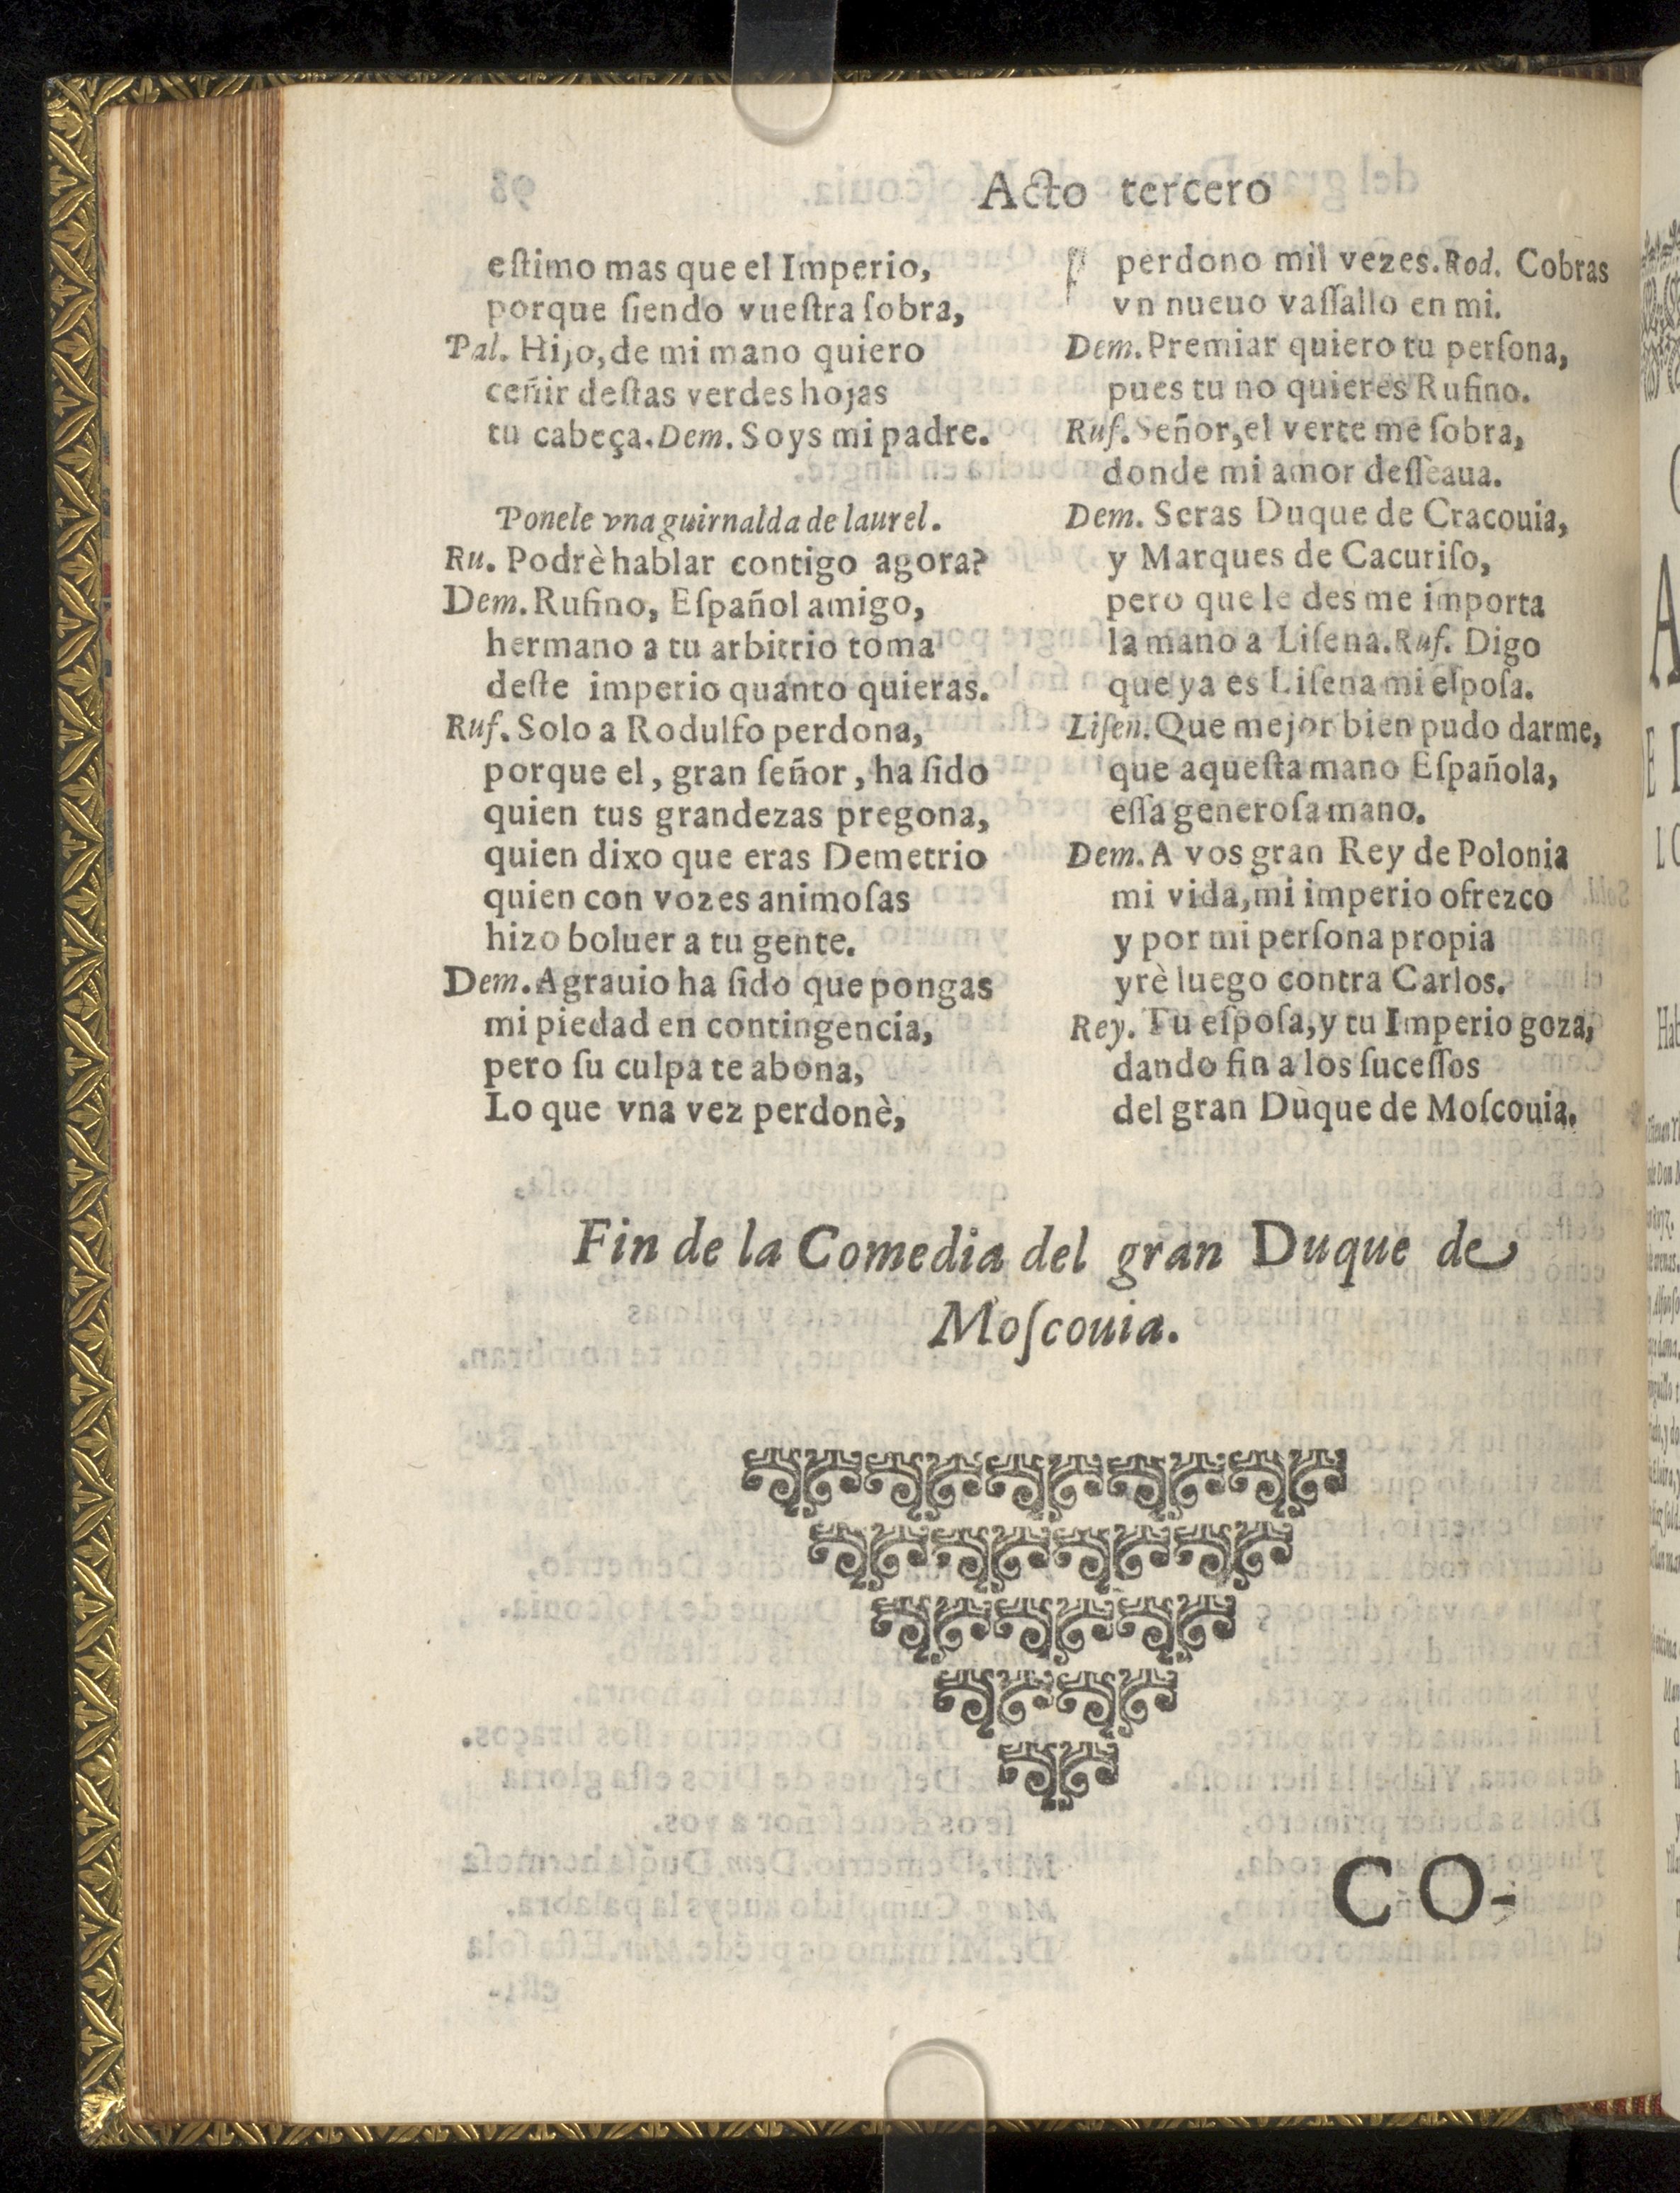 Acto tercero
eſtimo mas que el Imperio,
porque ſiendo vueſtra ſobra,
Pal. Hijo, de mi mano quiero
ceñir deſtas verdes hojas
tu cabeça. Dem. Soys mi padre.
Ponele vna guirnalda de laurel.
Ru. Podrè hablar contigo agora?
Dem. Rufino, Eſpañol amigo,
hermano a tu arbitrio toma
deſte imperio quanto quieras.
Ruf. Solo a Rodulfo perdona,
porque el, gran ſeñor, ha ſido
quien tus grandezas pregona,
quien dixo que eras Demetrio
quien con vozes animoſas
hizo boluer a tu gente.
Dem. Agrauio ha ſido que pongas
mi piedad en contingencia,
pero ſu culpa te abona,
Lo que vna vez perdonè,
perdono mil vezes. Rod. Cobras
vn nueuo vaſſallo en mi.
Dem. Premiar quiero tu perſona,
pues tu no quieres Rufino.
Ruf. Señor, el verte me ſobra,
donde mi amor deſſeaua.
Dem. Seras Duque de Cracouia,
y Marques de Cacuriſo,
pero que le des me importa
la mano a Liſena. Ruf. Digo
que ya es Liſena mi eſpoſa.
Liſen. Que mejor bien pudo darme,
que aqueſta mano Eſpañola,
eſſa generoſa mano.
Dem. A vos gran Rey de Polonia
mi vida, mi imperio ofrezco
y por mi perſona propia
yrè luego contra Carlos.
Rey. Tu eſpoſa, y tu Imperio goza,
dando fin a los ſuceſſos
del gran Duque de Moſcouia.
Fin de la Comedia del gran Duque de
Moſcouia.
CO-